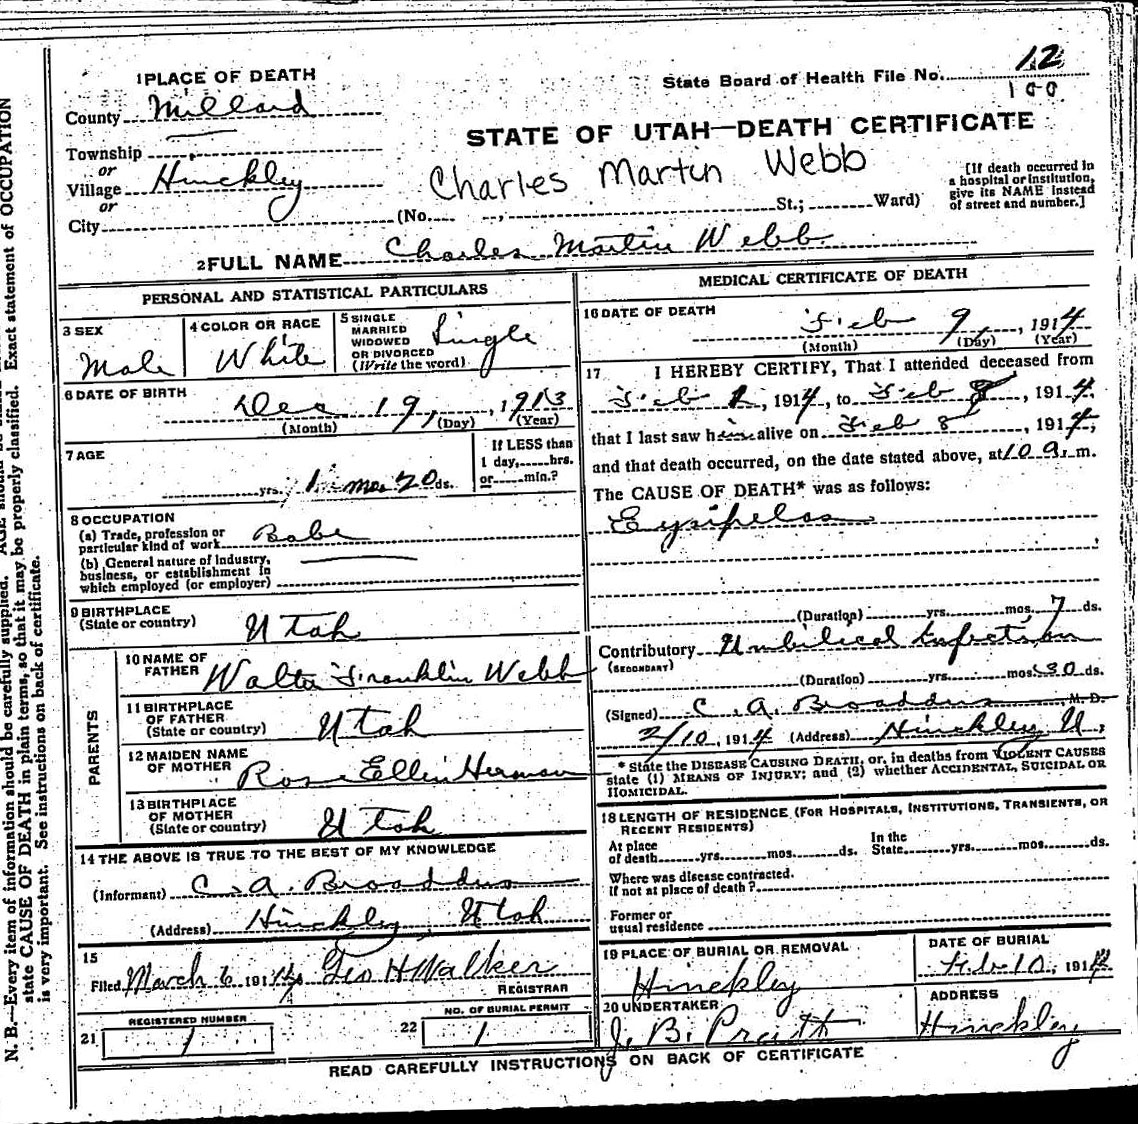 1 PLACE OF DEATH
State Board of Health File No. 12
100
County Millard
STATE OF UTAH—DEATH CERTIFICATE
Township
or
Village Hinckley
Charles Martin Webb
[If death occurred in
a hospital or institution,
give its NAME instead
of street and number.]
or
City (No. , St.; Ward)
2 FULL NAME Charles Martin Webb
PERSONAL AND STATISTICAL PARTICULARS
3 SEX
Male
4 COLOR OR RACE
White
5 SINGLE
MARRIED
WIDOWED
OR DIVORCED
(Write the word)
Single
6 DATE OF BIRTH
Dec 19, , 1913
(Month) (Day) (Year)
7 AGE
yrs. 1 mos. 20 ds.
If LESS than
1 day, hrs.
or min.?
8 OCCUPATION
(a) Trade, profession or
particular kind of work Babe
(b) General nature of industry,
business, or establishment in
which employed (or employer)
9 BIRTHPLACE
(State or country)
Utah
PARENTS
10 NAME OF
FATHER
Walter Franklin Webb
11 BIRTHPLACE
OF FATHER
(State or country)
Utah
12 MAIDEN NAME
OF MOTHER
Rose Ellen
13 BIRTHPLACE
OF MOTHER
(State or country)
Utah
14 THE ABOVE IS TRUE TO THE BEST OF MY KNOWLEDGE
(Informant) C. A. Broaddus
(Address) Hinckley Utah
15
Filed March 6 191 Geo H Walker
REGISTRAR
21 REGISTERED NUMBER
1
22 NO. OF BURIAL PERMIT
1
MEDICAL CERTIFICATE OF DEATH
16 DATE OF DEATH
Feb 9, , 1914
(Month) (Day) (Year)
17 I HEREBY CERTIFY, That I attended deceased from
Feb , 1914, to Feb 8 , 1914,
that I last saw him alive on Feb 8 , 1914,
and that death occurred, on the date stated above, at 10 a. m.
The CAUSE OF DEATH* was as follows:
Eysipelas
(Duration) yrs. mos. 7 ds.
Contributory Umbilical Infection
(SECONDARY)
(Duration) yrs. mos. 30 ds.
(Signed) C. A. Broaddus M. D.
2/10, 1914 (Address) Hinckley, U,
* State the DISEASE CAUSING DEATH, or, in deaths from VIOLENT CAUSES
state (1) MEANS OF INJURY; and (2) whether ACCIDENTAL, SUICIDAL OR
HOMICIDAL.
18 LENGTH OF RESIDENCE (FOR HOSPITALS, INSTITUTIONS, TRANSIENTS, OR
RECENT RESIDENTS)
At place
of death yrs. mos. ds.
In the
State yrs. mos. ds.
Where was disease contracted.
if not at place of death?
Former or
usual residence
19 PLACE OF BURIAL OR REMOVAL
Hinckley
DATE OF BURIAL
Feb 10, 1914
20 UNDERTAKER
J. B. Pratt
ADDRESS
Hinckley
READ CAREFULLY INSTRUCTIONS ON BACK OF CERTIFICATE
N. B.—Every item of information should be carefully supplied. AGE should be
state CAUSE OF DEATH in plain terms, so that it may be properly classified. Exact statement of OCCUPATION
is very important. See instructions on back of certificate.